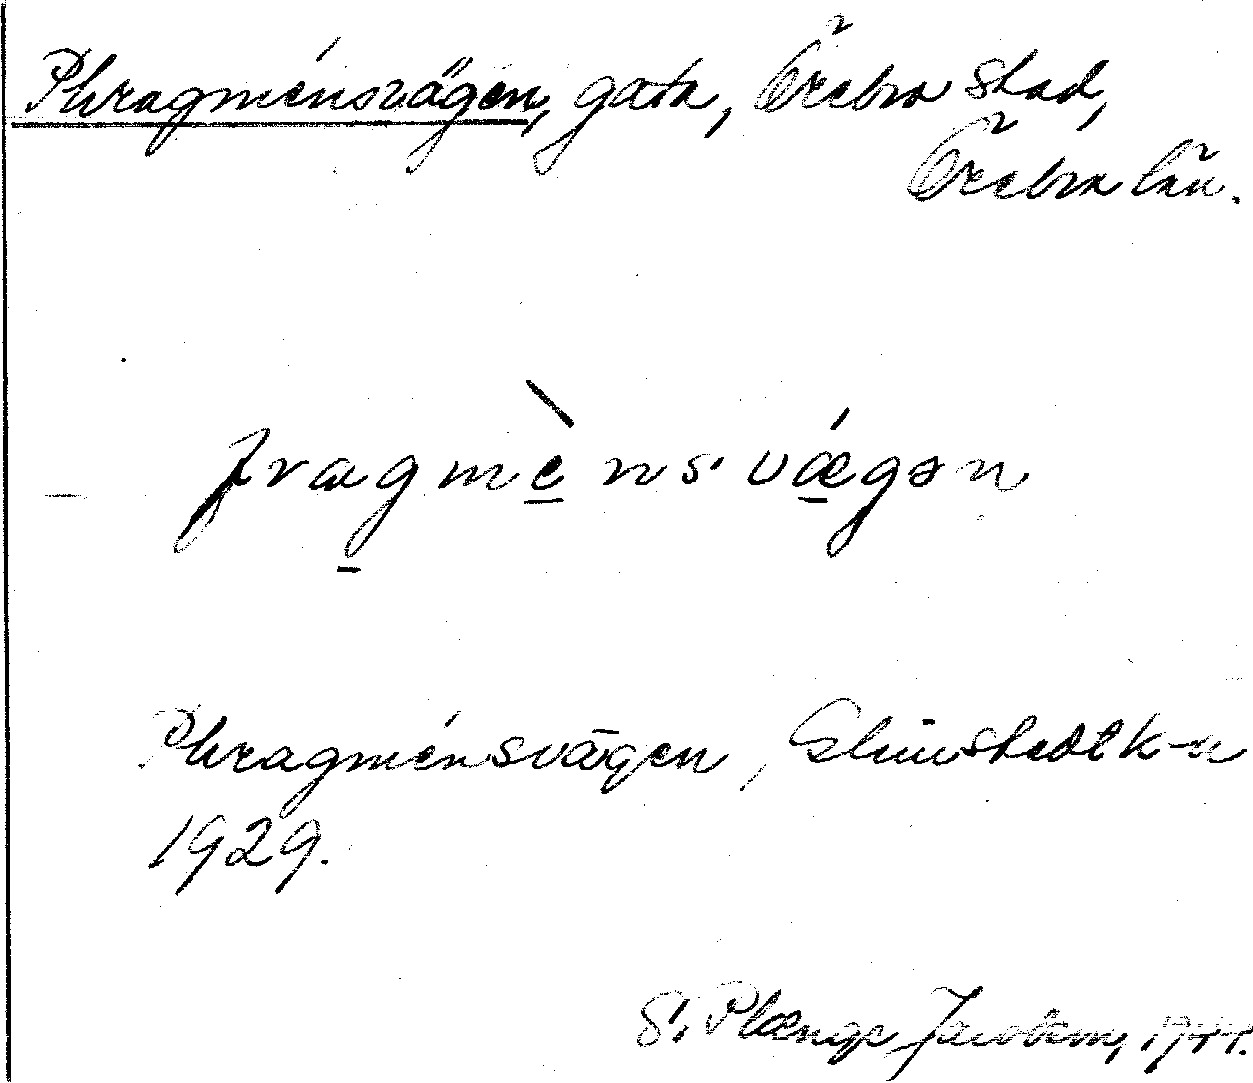 Phragménsvägen, gata, Örebro stad,
Örebro län.
fragmènsvǽgən
Phragménsvägen, Glimstedt k-n
1929.
S. Plænge Jacobson, 1944.